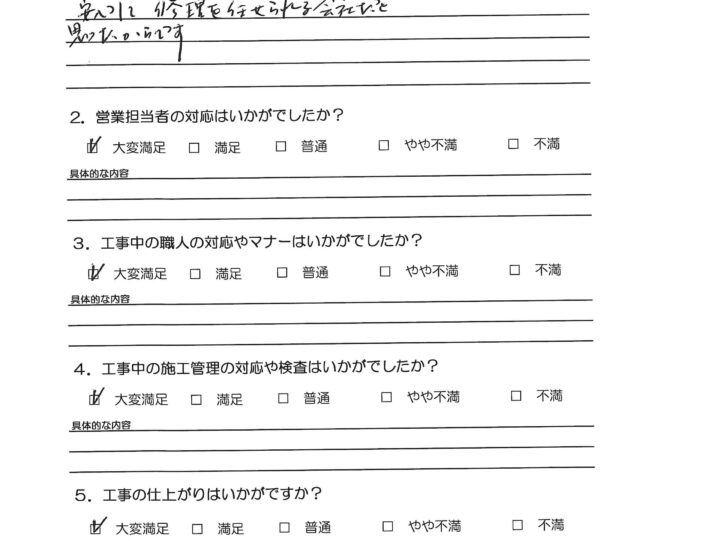 安心して修理を任せられる会社だと
思ったからです
2．営業担当者の対応はいかがでしたか？
☑ 大変満足 □ 満足 □ 普通 □ やや不満 □ 不満
具体的な内容
3．工事中の職人の対応やマナーはいかがでしたか？
☑ 大変満足 □ 満足 □ 普通 □ やや不満 □ 不満
具体的な内容
4．工事中の施工管理の対応や検査はいかがでしたか？
☑ 大変満足 □ 満足 □ 普通 □ やや不満 □ 不満
具体的な内容
5．工事の仕上がりはいかがですか？
☑ 大変満足 □ 満足 □ 普通 □ やや不満 □ 不満